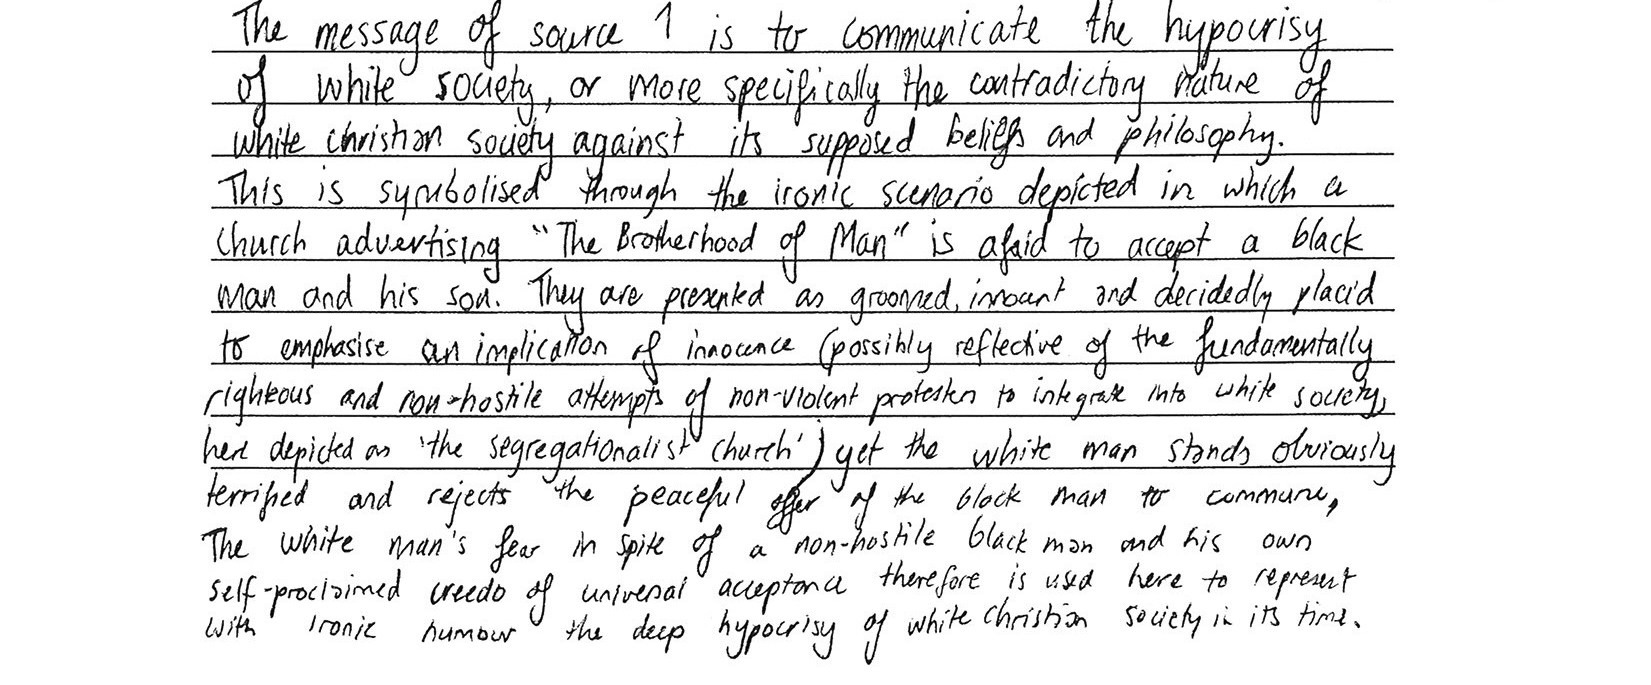 The message of source 1 is to communicate the hypocrisy
of white society, or more specifically the contradictory nature of
white christian society against its supposed beliefs and philosophy.
This is symbolised through the ironic scenario depicted in which a
church advertising "The Brotherhood of Man" is afaid to accept a black
man and his son. They are presented as groomed, innocent and decidedly placid
to emphasise an implication of innocence (possibly reflective of the fundamentally
righteous and non-hostile attempts of non-violent protesters to integrate into white society,
here depicted as 'the segregationalist church') yet the white man stands obviously
terrified and rejects the peaceful offer of the black man to commune,
The white man's fear in spite of a non-hostile black man and his own
self-proclaimed creedo of universal acceptance therefore is used here to represent
with ironic humour the deep hypocrisy of white christian society in its time.